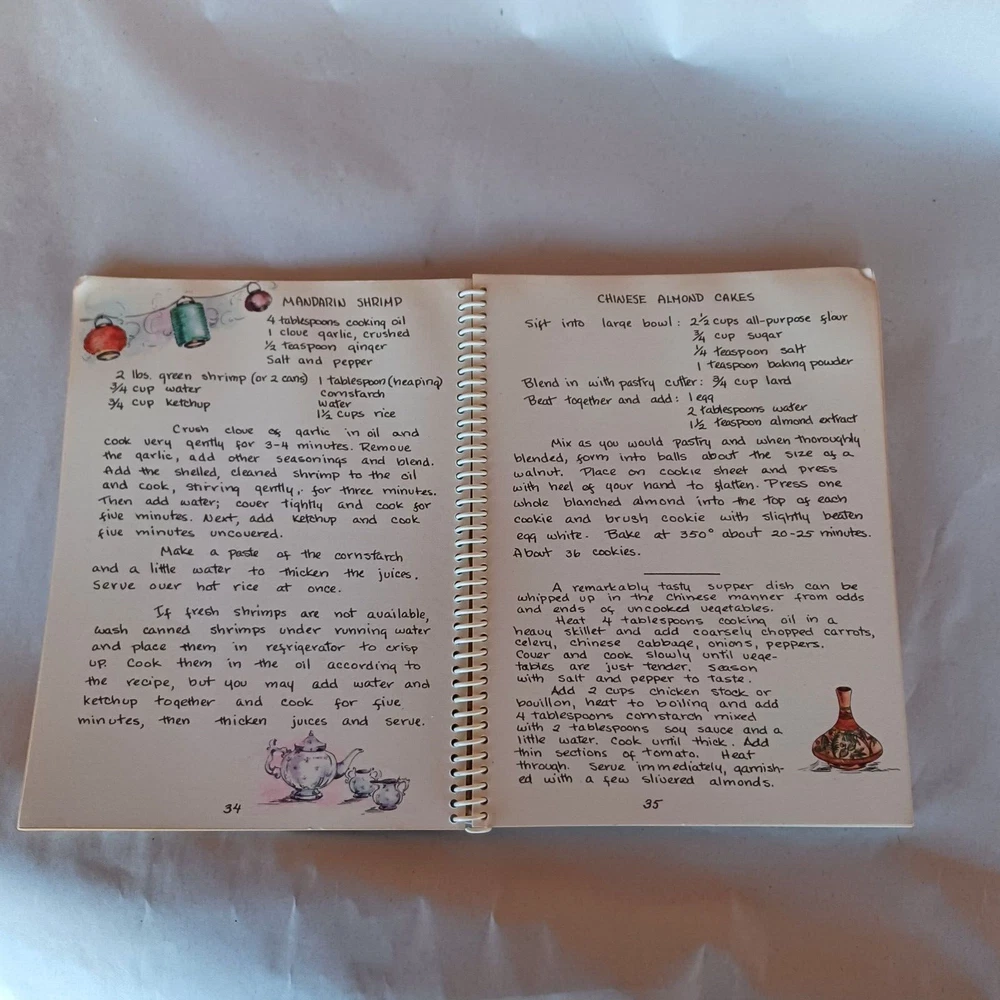 MANDARIN SHRIMP
4 tablespoons cooking oil
1 clove garlic, crushed
½ teaspoon ginger
Salt and pepper
2 lbs. green shrimp (or 2 cans)
¾ cup water
¾ cup ketchup
1 tablespoon (heaping)
cornstarch
water
1½ cups rice
Crush clove of garlic in oil and
cook very gently for 3-4 minutes. Remove
the garlic, add other seasonings and blend.
Add the shelled, cleaned shrimp to the oil
and cook, stirring gently, for three minutes.
Then add water; cover tightly and cook for
five minutes. Next, add ketchup and cook
five minutes uncovered.
Make a paste of the cornstarch
and a little water to thicken the juices.
Serve over hot rice at once.
If fresh shrimps are not available,
wash canned shrimps under running water
and place them in refrigerator to crisp
up. Cook them in the oil according to
the recipe, but you may add water and
ketchup together and cook for five
minutes, then thicken juices and serve.
34
CHINESE ALMOND CAKES
Sift into large bowl: 2½ cups all-purpose flour
¾ cup sugar
¼ teaspoon salt
1 teaspoon baking powder
Blend in with pastry cutter: ¾ cup lard
Beat together and add: 1 egg
2 tablespoons water
1½ teaspoon almond extract
Mix as you would pastry and when thoroughly
blended, form into balls about the size of a
walnut. Place on cookie sheet and press
with heel of your hand to flatten. Press one
whole blanched almond into the top of each
cookie and brush cookie with slightly beaten
egg white. Bake at 350° about 20-25 minutes.
About 36 cookies.
A remarkably tasty supper dish can be
whipped up in the Chinese manner from odds
and ends of uncooked vegetables.
Heat 4 tablespoons cooking oil in a
heavy skillet and add coarsely chopped carrots,
celery, chinese cabbage, onions, peppers.
Cover and cook slowly until vege-
tables are just tender. Season
with salt and pepper to taste.
Add 2 cups chicken stock or
bouillon, heat to boiling and add
4 tablespoons cornstarch mixed
with 2 tablespoons soy sauce and a
little water. Cook until thick. Add
thin sections of tomato. Heat
through. Serve immediately, garnish-
ed with a few slivered almonds.
35